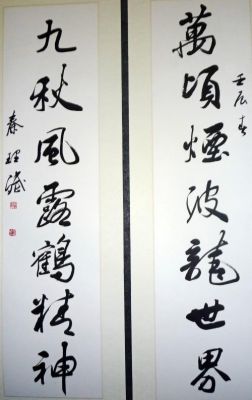 壬辰春
萬頃煙波龍世界
九秋風露鶴精神
秦理斌